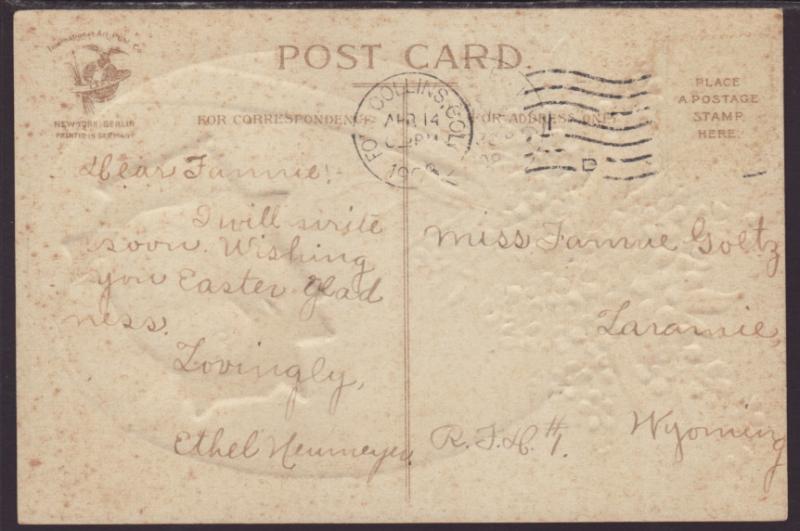 POST CARD.
International Art Publ. Co.
NEW YORK-BERLIN
PRINTED IN GERMANY
FOR CORRESPONDENCE
FOR ADDRESS ONLY
PLACE
A POSTAGE
STAMP
HERE.
COLLINS, COL
APR 14
Dear Fannie!
I will write
soon. Wishing
you Easter glad
ness.
Lovingly,
Ethel Neumeyer
Miss Fannie Goltz
Laramie,
Wyoming
R.F.D. #1.